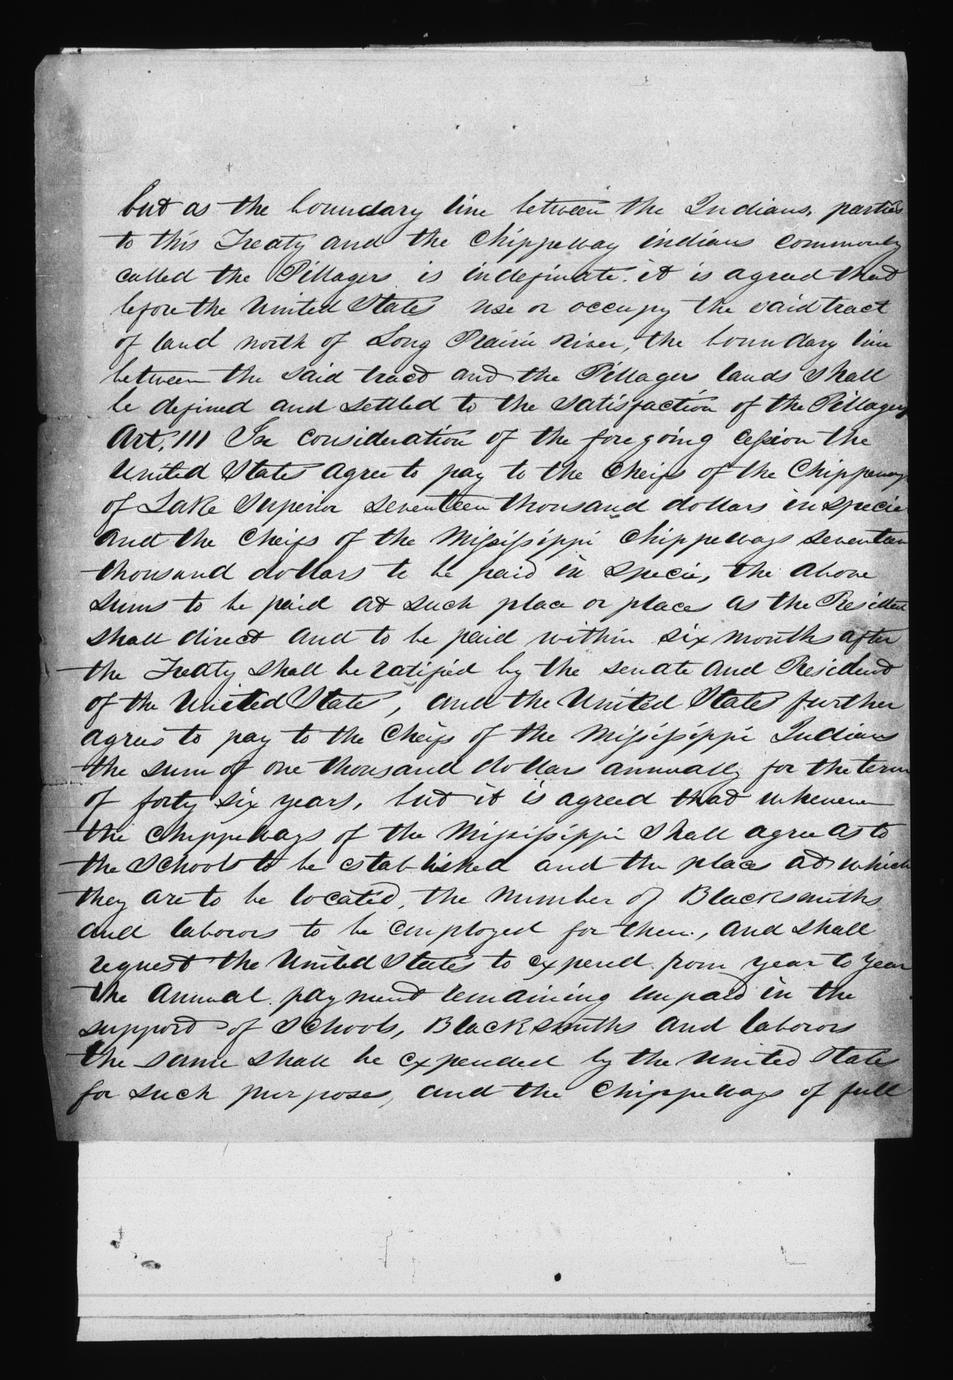 but as the boundary line between the Indians, parties
to this Treaty and the Chippeway indians commonly
called the Pillagers is indefinate. it is agreed that
before the United States use or occupy the said tract
of land north of Long Prairie River, the boundary line
between the said tract and the Pillagers lands shall
be defined and settled to the satisfaction of the Pillagers
Art. III In consideration of the foregoing cession the
United States agree to pay to the Cheifs of the Chippeways
of Lake Superior seventeen thousand dollars in specie
and the Cheifs of the Mississippi Chippeways seventeen
thousand dollars to be paid in specie, the above
sums to be paid at such place or places as the President
shall direct and to be paid within six months after
the Treaty shall be ratified by the senate and President
of the United States, and the United States further
agrees to pay to the Cheifs of the Mississippi Indians
the sum of one thousand dollars annually for the term
of forty six years, but it is agreed that whenever
the Chippeways of the Mississippi shall agree as to
the Schools to be established and the places at which
they are to be located, the number of Blacksmiths
and laborors to be employed for them, and shall
request the United States to expend from year to year
the annual payment remaining unpaid in the
support of Schools, Blacksmiths and laborors
the same shall be expended by the United States
for such purposes, and the Chippeways of full